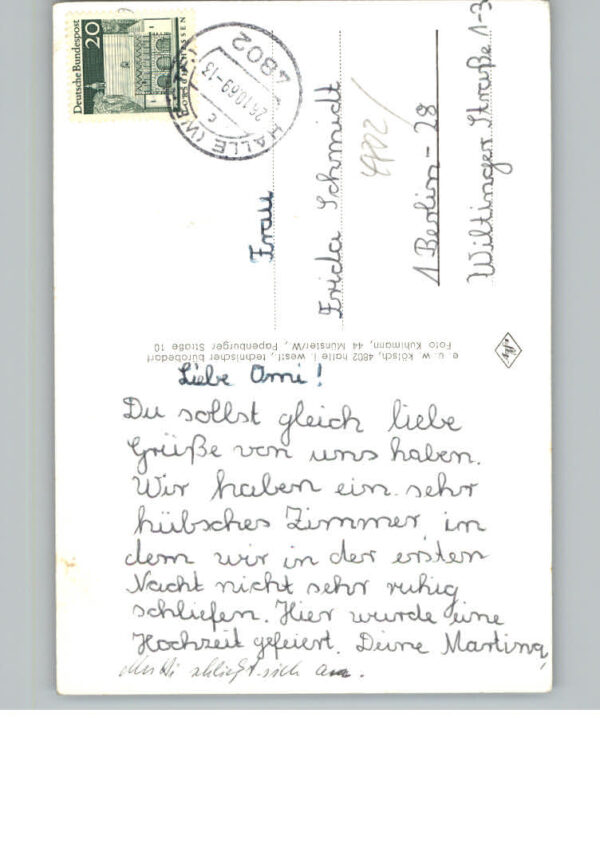 Deutsche Bundespost
20
HALLE (WESTF.)
c
26.10.69-13
4802
Frau
Frida Schmidt
1 Berlin-28
Wiltinger Straße 1-3
e. u. w. kölsch, 4802 halle i. westf., technischer bürobedarf
Foto Kuhlmann, 44 Münster/W., Papenburger Straße 10
Liebe Omi!
Du sollst gleich liebe
Grüße von uns haben.
Wir haben ein sehr
hübsches Zimmer, in
dem wir in der ersten
Nacht nicht sehr ruhig
schliefen. Hier wurde eine
Hochzeit gefeiert. Deine Martina,
schließt sich an.